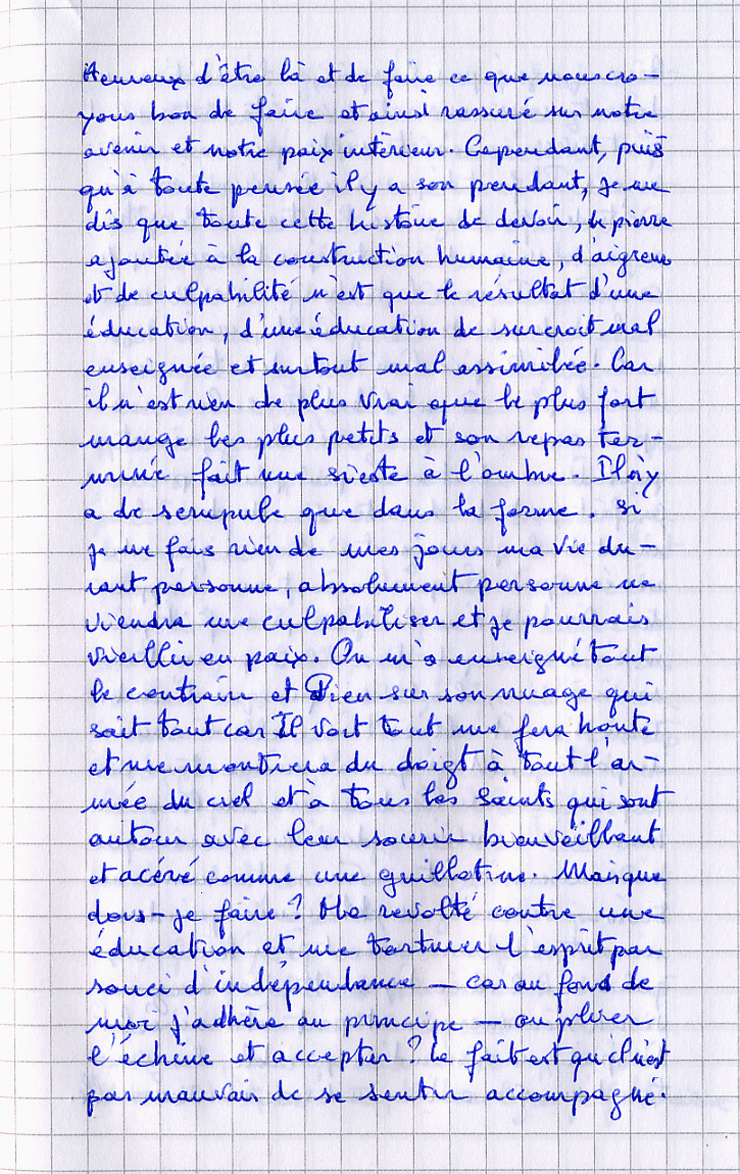 Heureux d'être là et de faire ce que nous cro-
yons bon de faire et ainsi rassuré sur notre
avenir et notre paix intérieur. Cependant, puis
qu'à toute pensée il y a son pendant, je me
dis que toute cette histoire de devoir, de pierre
ajoutée à la construction humaine, d'aigreur
et de culpabilité n'est que le résultat d'une
éducation, d'une éducation de surcroit mal
enseignée et surtout mal assimilée. Car
il n'est rien de plus vrai que le plus fort
mange les plus petits et son repas ter-
miné fait une sieste à l'ombre. Il n'y
a de scrupule que dans la forme. Si
je ne fais rien de mes jours ma vie du-
rant personne, absolument personne ne
viendra me culpabiliser et je pourrais
vieillir en paix. On m'a enseigné tout
le contraire et Dieu sur son nuage qui
sait tout car Il voit tout me fera honte
et me montrera du doigt à tout l'ar-
mée du ciel et à tous les Saints qui sont
autour avec leur sourire bienveillant
et acéré comme une guillotine. Mais que
dois-je faire ? Me revolté contre une
éducation et me torturer l'esprit par
souci d'indépendance — car au fond de
moi j'adhère au principe — ou plier
l'échine et accepter ? Le fait est qu'il n'est
pas mauvais de se sentir accompagné.